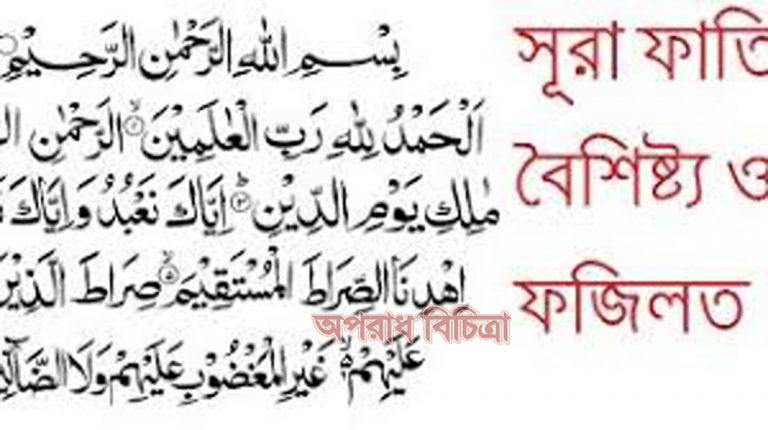 بِسْمِ اللهِ الرَّحْمٰنِ الرَّحِيْمِ
اَلْحَمْدُ لِلّٰهِ رَبِّ الْعٰلَمِيْنَ ۙ﴿۱﴾ الرَّحْمٰنِ
مٰلِكِ يَوْمِ الدِّيْنِ ؕ﴿۳﴾ اِيَّاكَ نَعْبُدُ وَ اِيَّاكَ
اِهْدِنَا الصِّرَاطَ الْمُسْتَقِيْمَ ۙ﴿۵﴾ صِرَاطَ الَّذِيْنَ
عَلَيْهِمْ ۙ۬ غَيْرِ الْمَغْضُوْبِ عَلَيْهِمْ وَلَا
সূরা ফাতি
বৈশিষ্ট্য ও
ফজিলত
অপরাধ বিচিত্রা